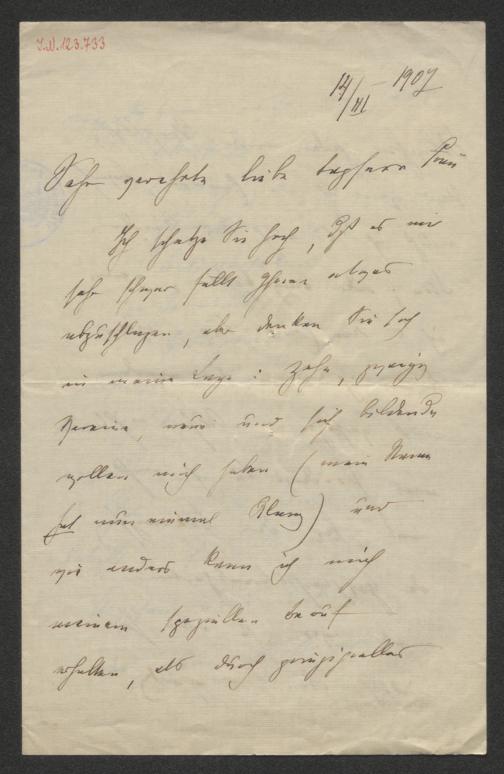 I.N. 123.733
14/III 1907
Sehr geehrte liebe tapfere Frau
Ich schätze Sie hoch, daß es mir
sehr schwer fällt Ihnen etwas
abzuschlagen, aber denken Sie sich
in meine Lage: Zehn, zwanzig
Vereine, neue und sich bildende
wollen mich haben (mein Name
hat nun einmal Klang) und
wie anders kann ich mich
meinem speziellen Beruf
erhalten, als durch prinzipielles